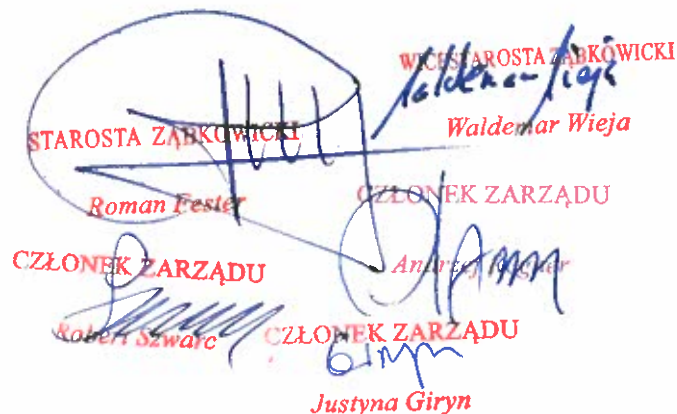 WICESTAROSTA ZĄBKOWICKI
Waldemar Wieja
Waldemar Wieja
STAROSTA ZĄBKOWICKI
Roman Fester
CZŁONEK ZARZĄDU
Andrzej
CZŁONEK ZARZĄDU
Robert Szwarc
CZŁONEK ZARZĄDU
Giryn
Justyna Giryn